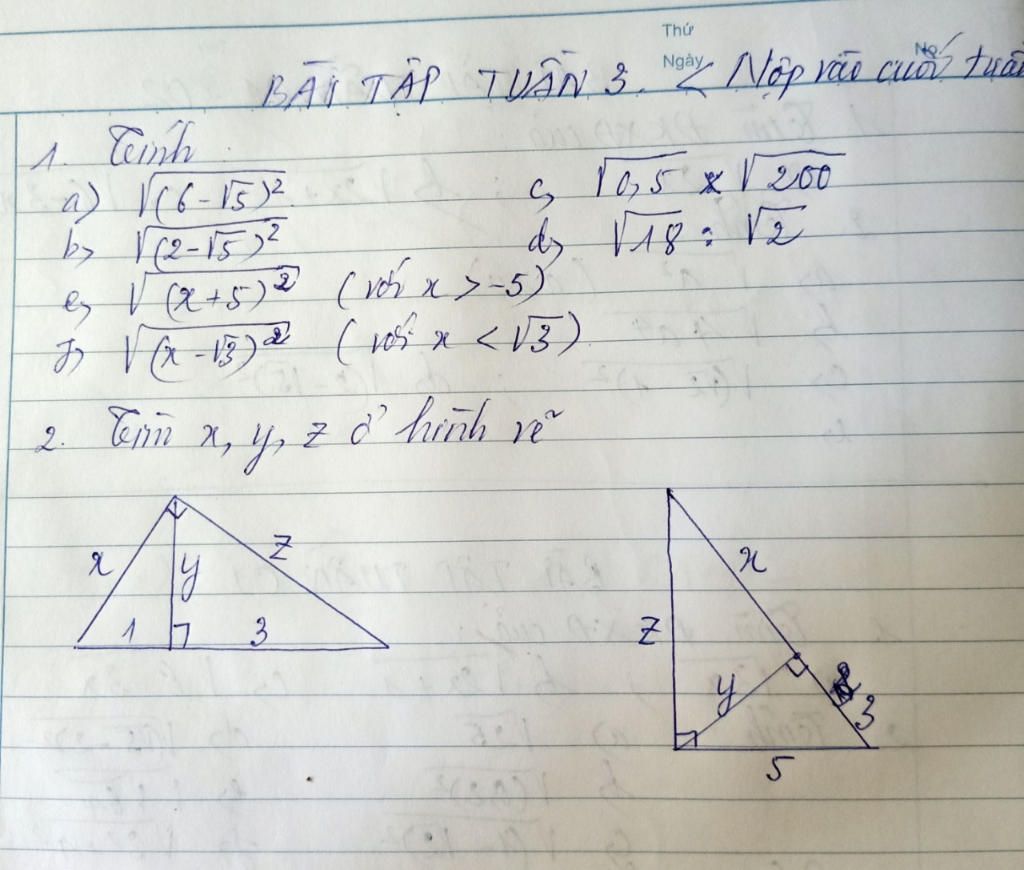 Thứ
Ngày No
BÀI TẬP TUẦN 3. < Nộp vào cuối tuần
1. Tính
a) √(6-√5)² c, √0,5 × √200
b, √(2-√5)² d, √18 : √2
e, √(x+5)² (với x > -5)
f, √(x-√3)² (với x < √3)
2. Tìm x, y, z ở hình vẽ
x y z
1 3
x
z
y
3
5